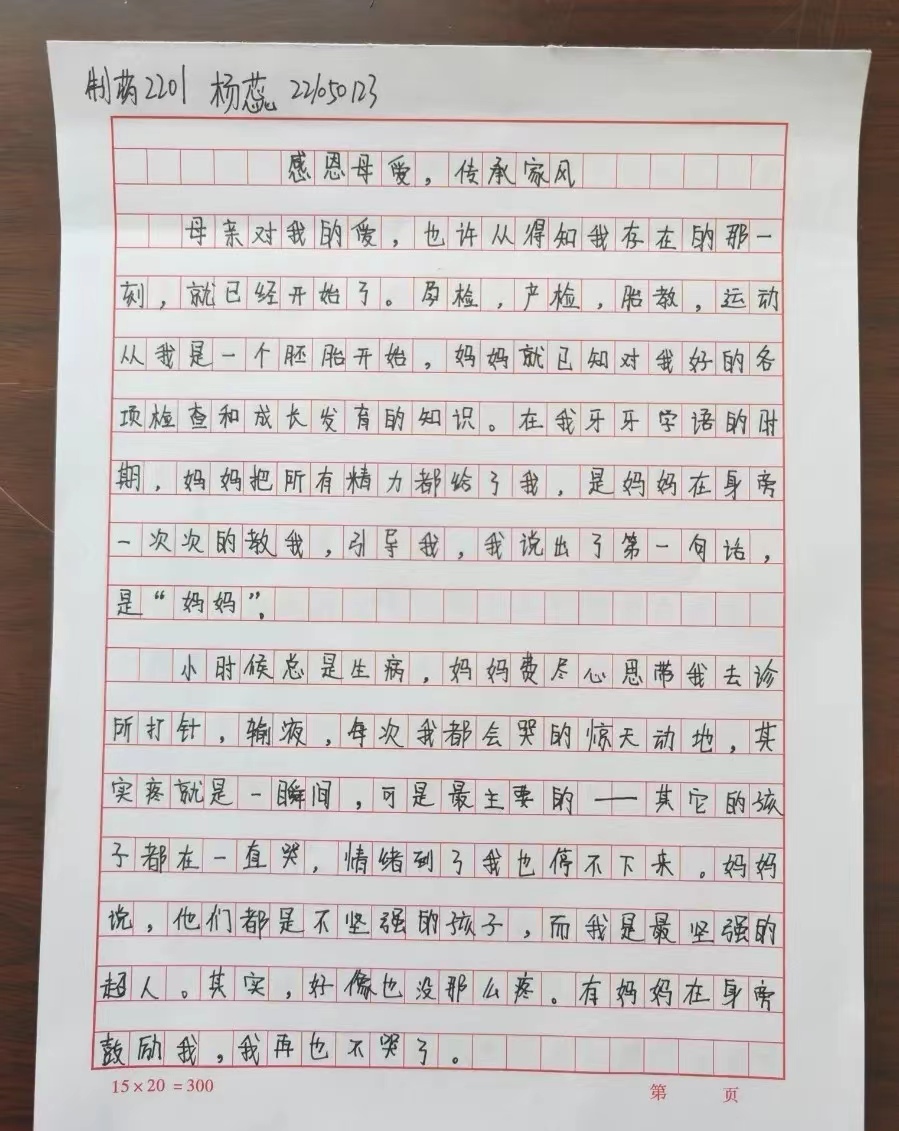 制药2201 杨蕊 221050123
感恩母爱，传承家风
母亲对我的爱，也许从得知我存在的那一
刻，就已经开始了。孕检，产检，胎教，运动
从我是一个胚胎开始，妈妈就已知对我好的各
项检查和成长发育的知识。在我牙牙学语的时
期，妈妈把所有精力都给了我，是妈妈在身旁
一次次的教我，引导我，我说出了第一句话，
是“妈妈”。
小时候总是生病，妈妈费尽心思带我去诊
所打针，输液，每次我都会哭的惊天动地，其
实疼就是一瞬间，可是最主要的——其它的孩
子都在一直哭，情绪到了我也停不下来。妈妈
说，他们都是不坚强的孩子，而我是最坚强的
超人。其实，好像也没那么疼。有妈妈在身旁
鼓励我，我再也不哭了。
15×20=300
第 页